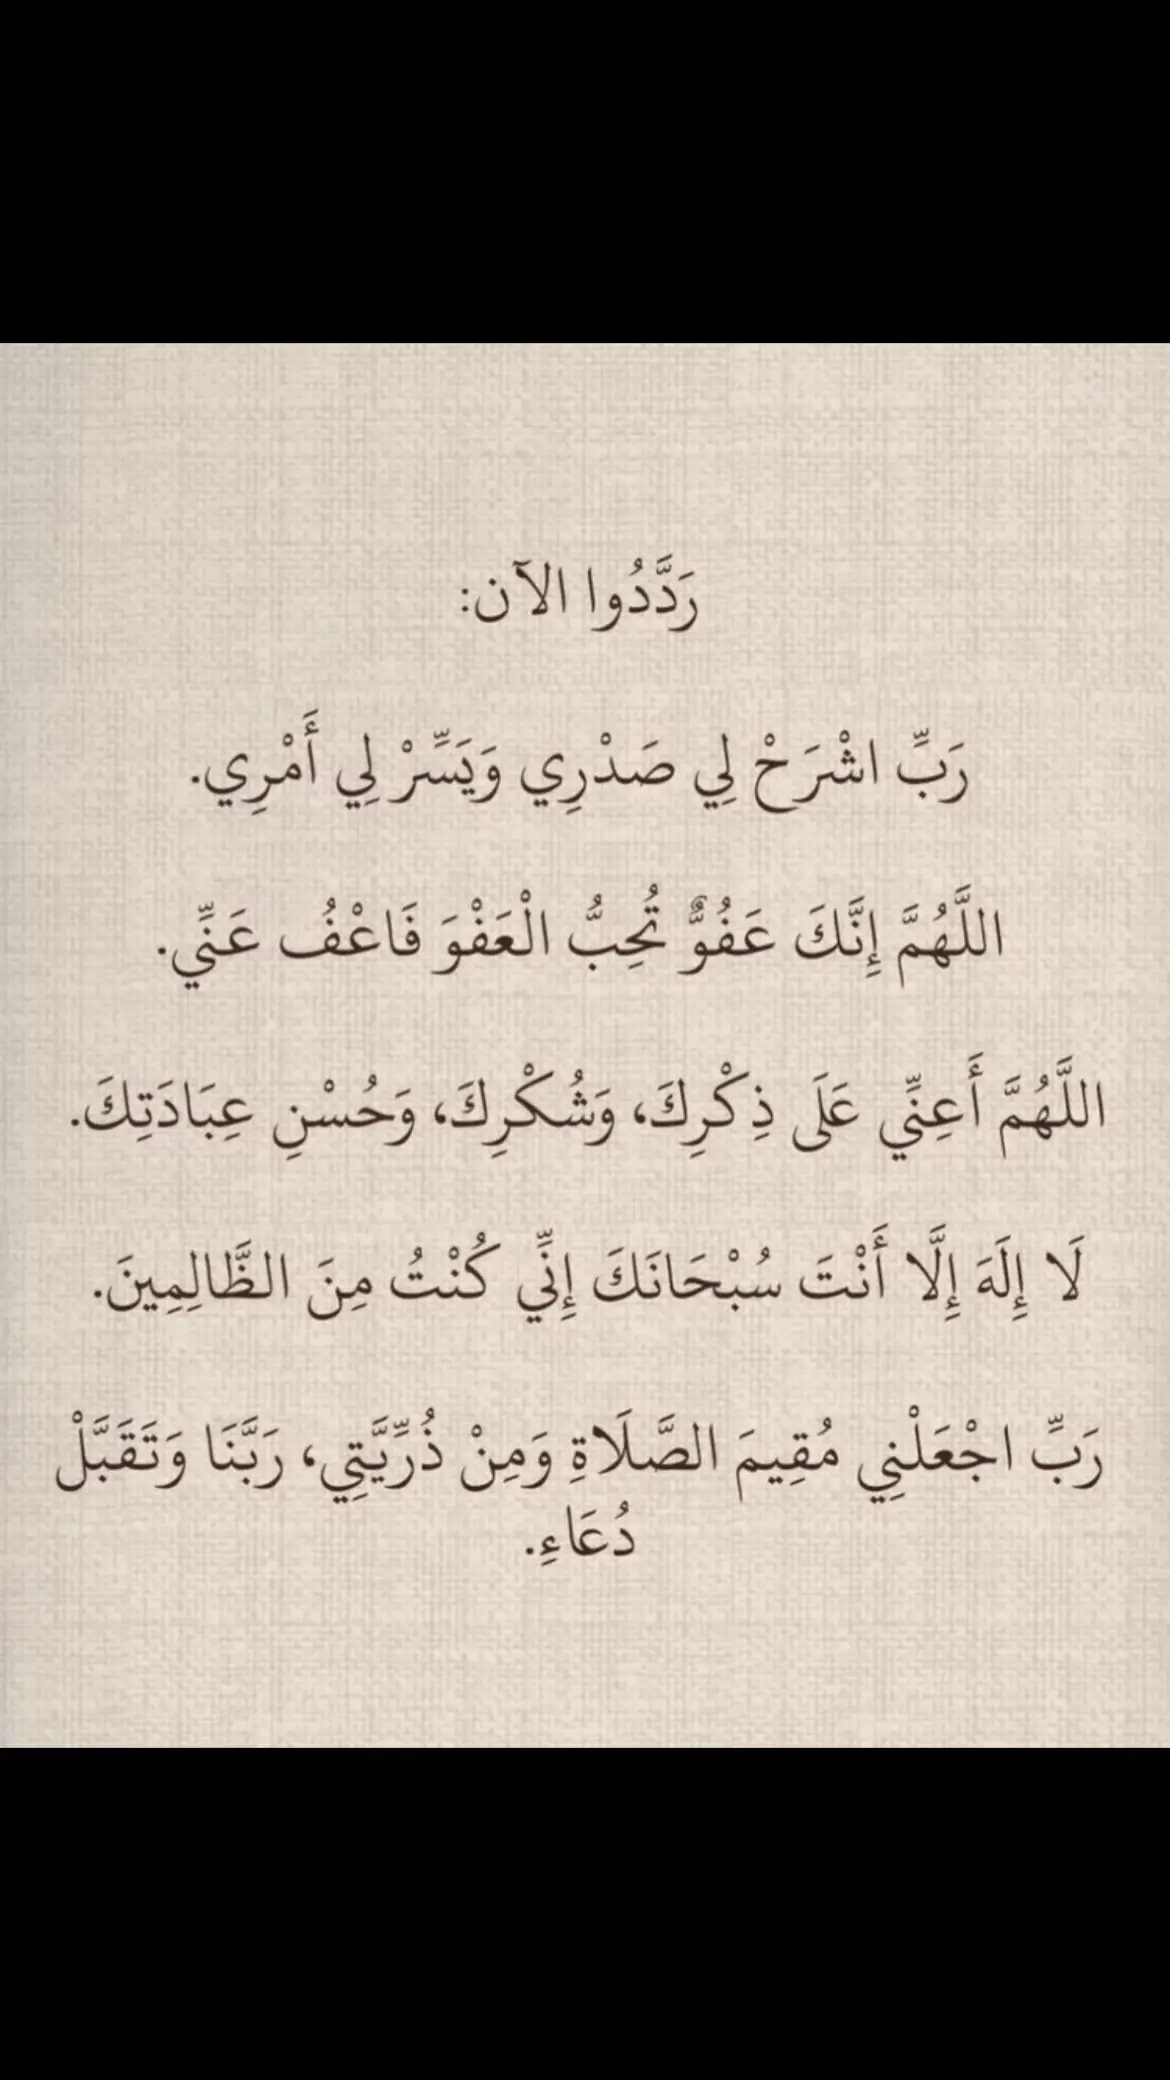 رَدَّدُوا الآن:
رَبِّ اشْرَحْ لِي صَدْرِي وَيَسِّرْ لِي أَمْرِي.
اللَّهُمَّ إِنَّكَ عَفُوٌّ تُحِبُّ الْعَفْوَ فَاعْفُ عَنِّي.
اللَّهُمَّ أَعِنِّي عَلَى ذِكْرِكَ، وَشُكْرِكَ، وَحُسْنِ عِبَادَتِكَ.
لَا إِلَهَ إِلَّا أَنْتَ سُبْحَانَكَ إِنِّي كُنْتُ مِنَ الظَّالِمِينَ.
رَبِّ اجْعَلْنِي مُقِيمَ الصَّلَاةِ وَمِنْ ذُرِّيَّتِي، رَبَّنَا وَتَقَبَّلْ
دُعَاءِ.